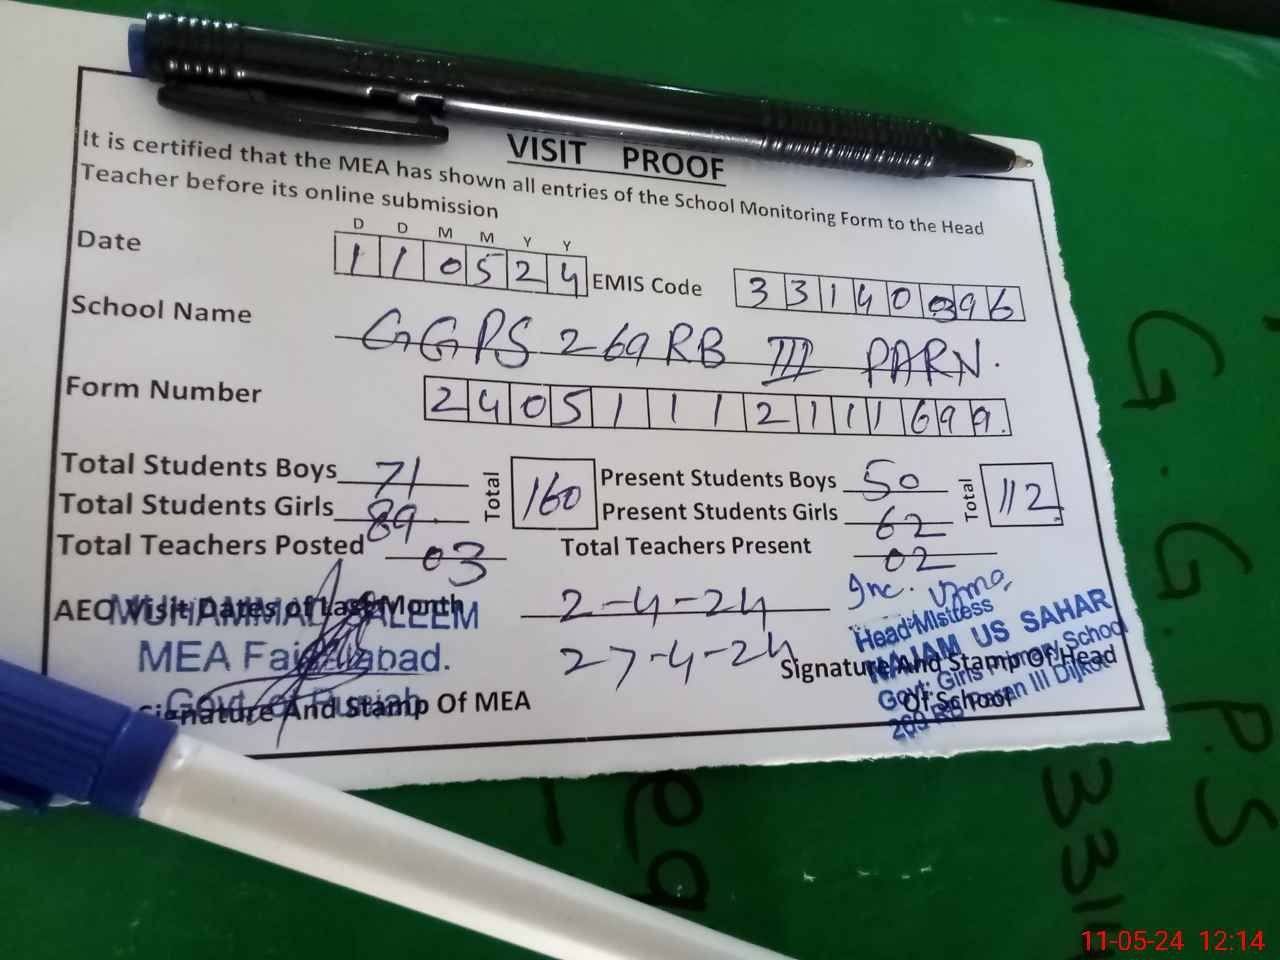 VISIT PROOF
It is certified that the MEA has shown all entries of the School Monitoring Form to the Head
Teacher before its online submission
D D M M Y Y
Date 110524 EMIS Code 33140396
School Name GGPS 269 RB III PARN.
Form Number 24051112111699.
Total Students Boys 71 Total 160 Present Students Boys 50 Total 112
Total Students Girls 89 Present Students Girls 62
Total Teachers Posted 03 Total Teachers Present 02
AEO Visit Dates of Last Month 2-4-24
27-4-24
MUHAMMAD SALEEM
MEA Faisalabad.
Govt. of Punjab
Signature And Stamp Of MEA
Inc.
Head Mistress
NAJAM US SAHAR
Govt: Girls Primary School
269 RB III Dijkot
Signature And Stamp Of Head
Of School
G.G.P.S
331
11-05-24 12:14